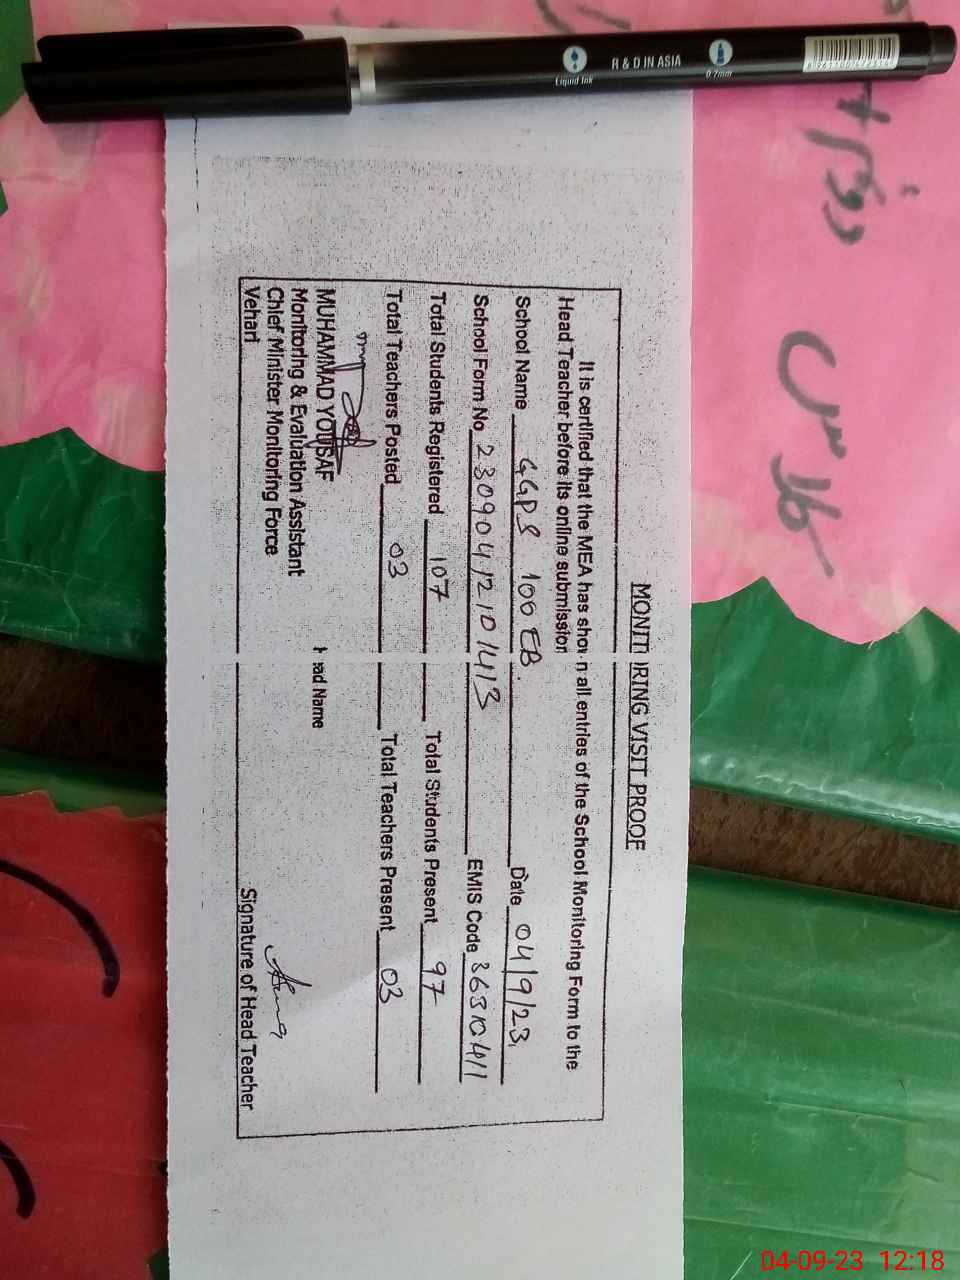 MONITORING VISIT PROOF
It is certified that the MEA has shown all entries of the School Monitoring Form to the
Head Teacher before its online submission
School Name GGPS 100 EB. Date 04/9/23
School Form No 23090412101413 EMIS Code 36310411
Total Students Registered 107 Total Students Present 97
Total Teachers Posted 03 Total Teachers Present 03
MUHAMMAD YOUSAF
Monitoring & Evaluation Assistant
Chief Minister Monitoring Force
Vehari
Head Name
Signature of Head Teacher
Liquid Ink R & D IN ASIA 0.7mm
04-09-23 12:18